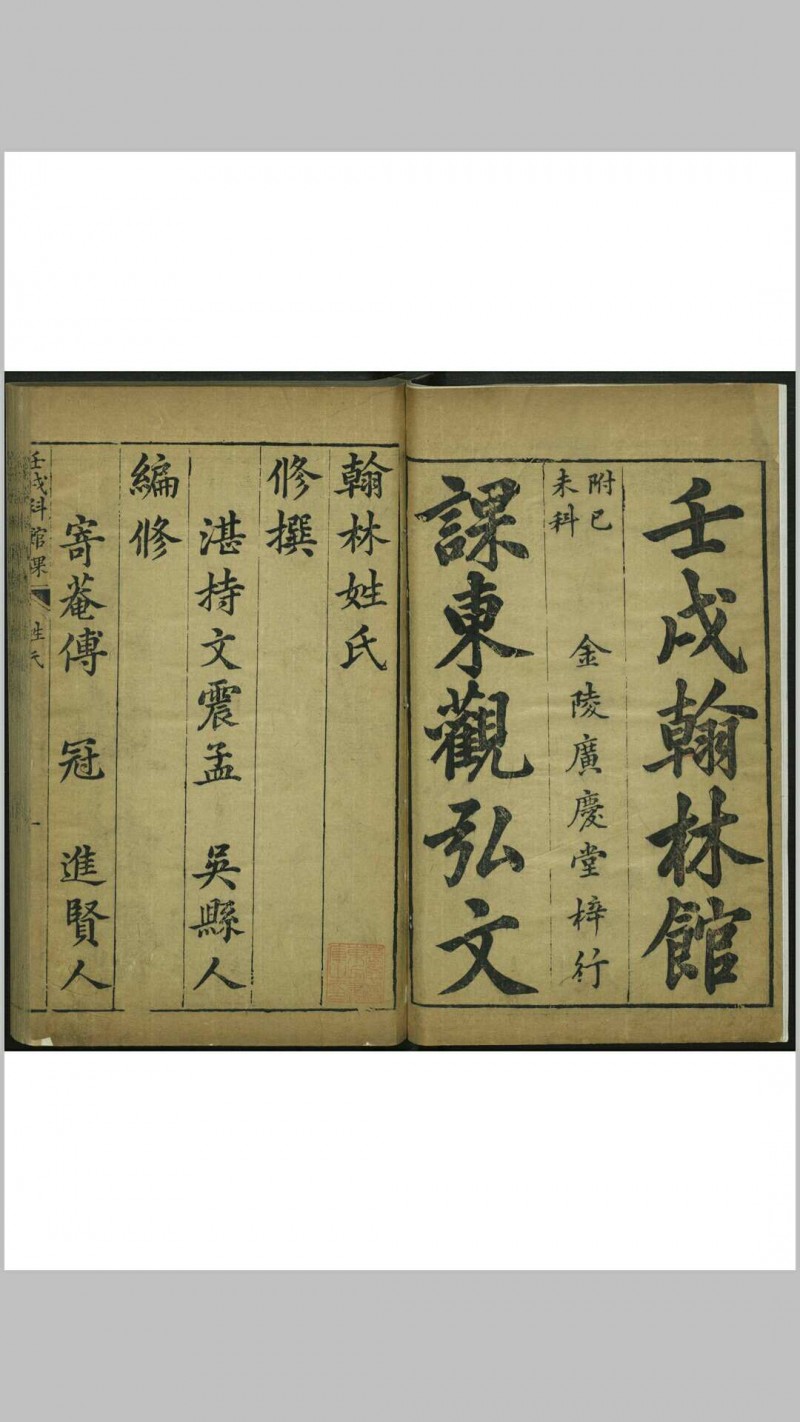 壬戌翰林館
附己
未科
金陵廣慶堂梓行
課東觀弘文
翰林姓氏
修撰
湛持文震孟 吳縣人
編修
寄菴傅 冠 進賢人
壬戌科館課 姓氏 一